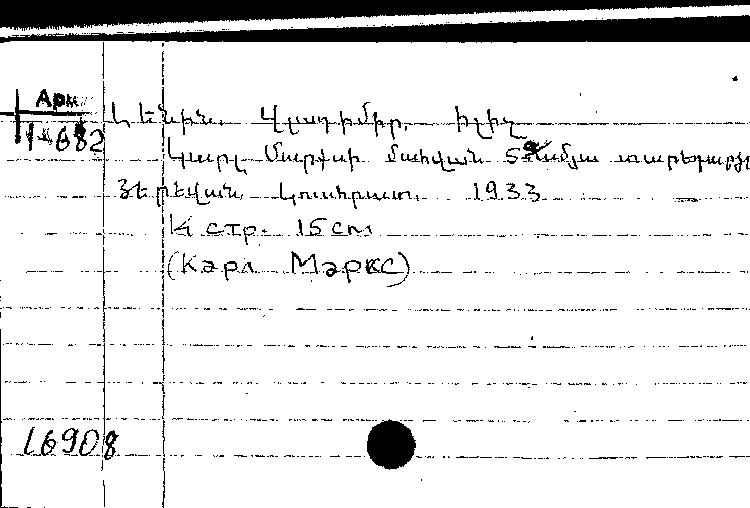 Арм
1-682
Լենին, Վլադիմիր, Իլիչ
Կարլ Մարքսի մահվան 50 ամյա տարեդարձը
Յերեվան, Կուսհրատ. 1933
14 стр. 15 см
(Карл Маркс)
16908